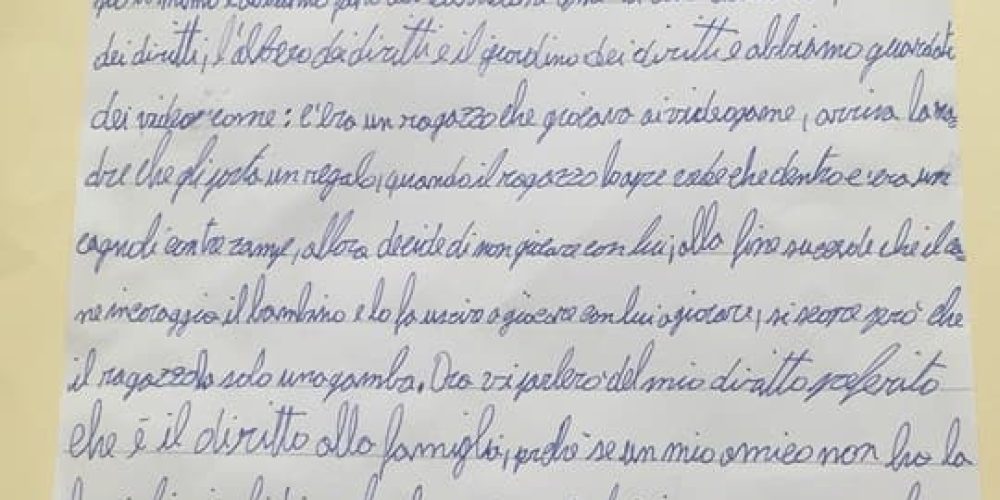 dei diritti, l'albero dei diritti e il giardino dei diritti e abbiamo guardato
dei video come: c'era un ragazzo che giocava ai videogame, arriva la ma-
dre che gli porta un regalo, quando il ragazzo lo apre vede che dentro c'era un
cagnoli con tre zampe, allora decide di non giocare con lui, alla fine succede che il ca-
ne incoraggia il bambino e lo fa uscire a giocare con lui a giocare, si scopre però che
il ragazzo ha solo una gamba. Ora vi parlerò del mio diritto preferito
che è il diritto alla famiglia, perché se un mio amico non ha la